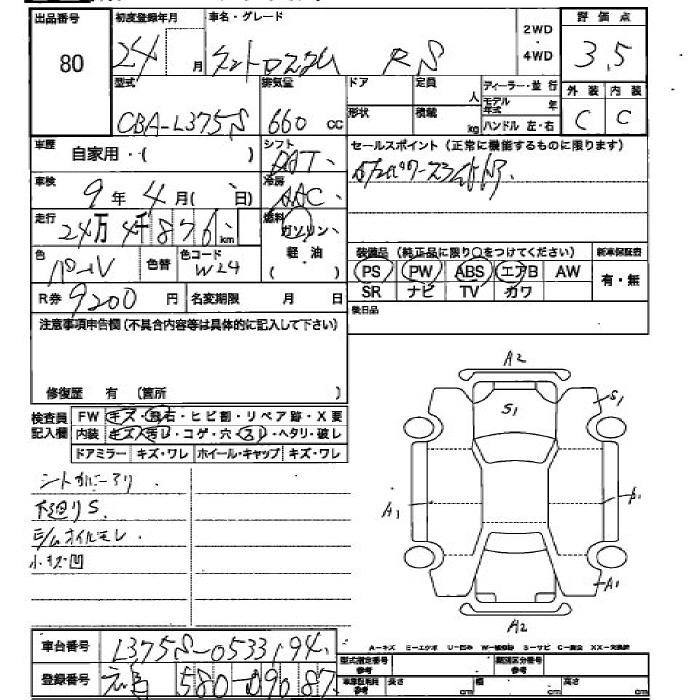 出品番号 初度登録年月 車名・グレード 2WD 評価点
80 24 月 タントエグゼカスタム RS ・ 4WD 3.5
型式 排気量 ドア 定員 人 ディーラー・並行 外装 内装
CBA-L375S 660 cc 形状 積載 kg モデル年式 年 ハンドル 左・右 C C
車歴 自家用・( ) シフト DAT セールスポイント(正常に機能するものに限ります)
車検 9年4月( 日) 冷房 AAC
走行 24万4千876km 燃料 ガソリン・軽油
色 パール 色替 色コード W24 装備品(純正品に限り○をつけてください) 新車保証書
PS PW ABS エアB AW 有・無
R券 9200円 名変期限 月 日 SR ナビ TV カワ
後日品
注意事項申告欄(不具合内容等は具体的に記入して下さい)
修復歴 有 (箇所 )
検査員記入欄 FW キズ・飛石・ヒビ割・リペア跡・X要
内装 キズ・汚レ・コゲ・穴・スレ・ヘタリ・破レ
ドアミラー キズ・ワレ ホイール・キャップ キズ・ワレ
A2
S1
S1
シートカバーアリ
下廻りS
E/Mオイルモレ
小キズ凹
A1
A1
A2
A-キズ E-エクボ U-凹み W-補修跡 S-サビ C-腐食 XX-交換済
車台番号 L375S-0533194
登録番号 580 90 87
型式指定番号 参考 類別区分番号 参考
車庫証明用 参考 長さ cm 幅 cm 高さ cm